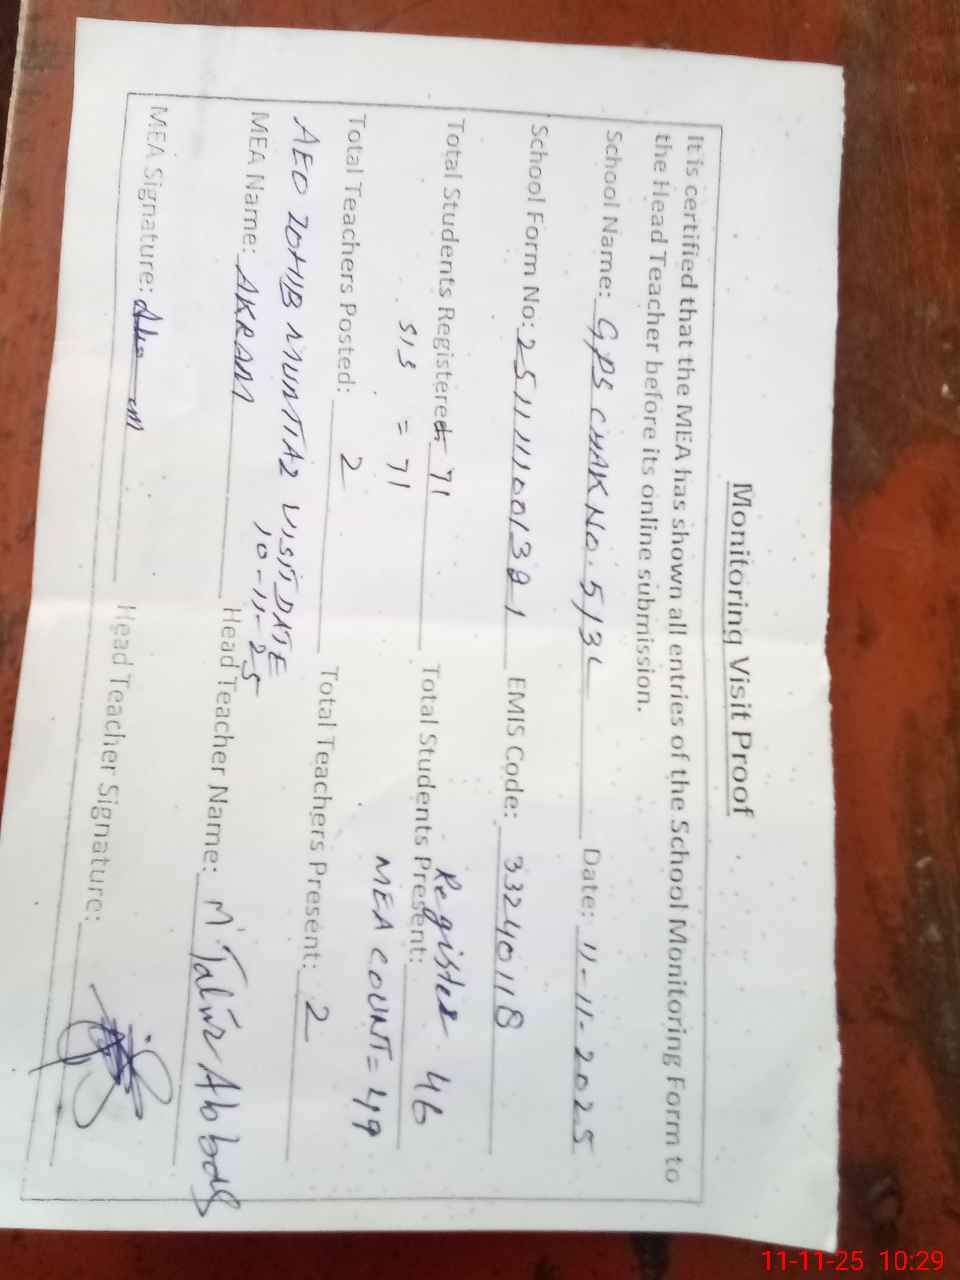 Monitoring Visit Proof
It is certified that the MEA has shown all entries of the School Monitoring Form to
the Head Teacher before its online submission.
School Name: GPS CHAK NO. 5/3L Date: 11-11-2025
School Form No: 2511111001381 EMIS Code: 33240118
Total Students Registered: 71 Total Students Present: Register 46
SIS = 71 MEA COUNT = 49
Total Teachers Posted: 2 Total Teachers Present: 2
AEO ZOHIB MUMTIAZ VISIT DATE
10-11-25
MEA Name: AKRAM Head Teacher Name: M. Abbas
MEA Signature: Head Teacher Signature:
11-11-25 10:29